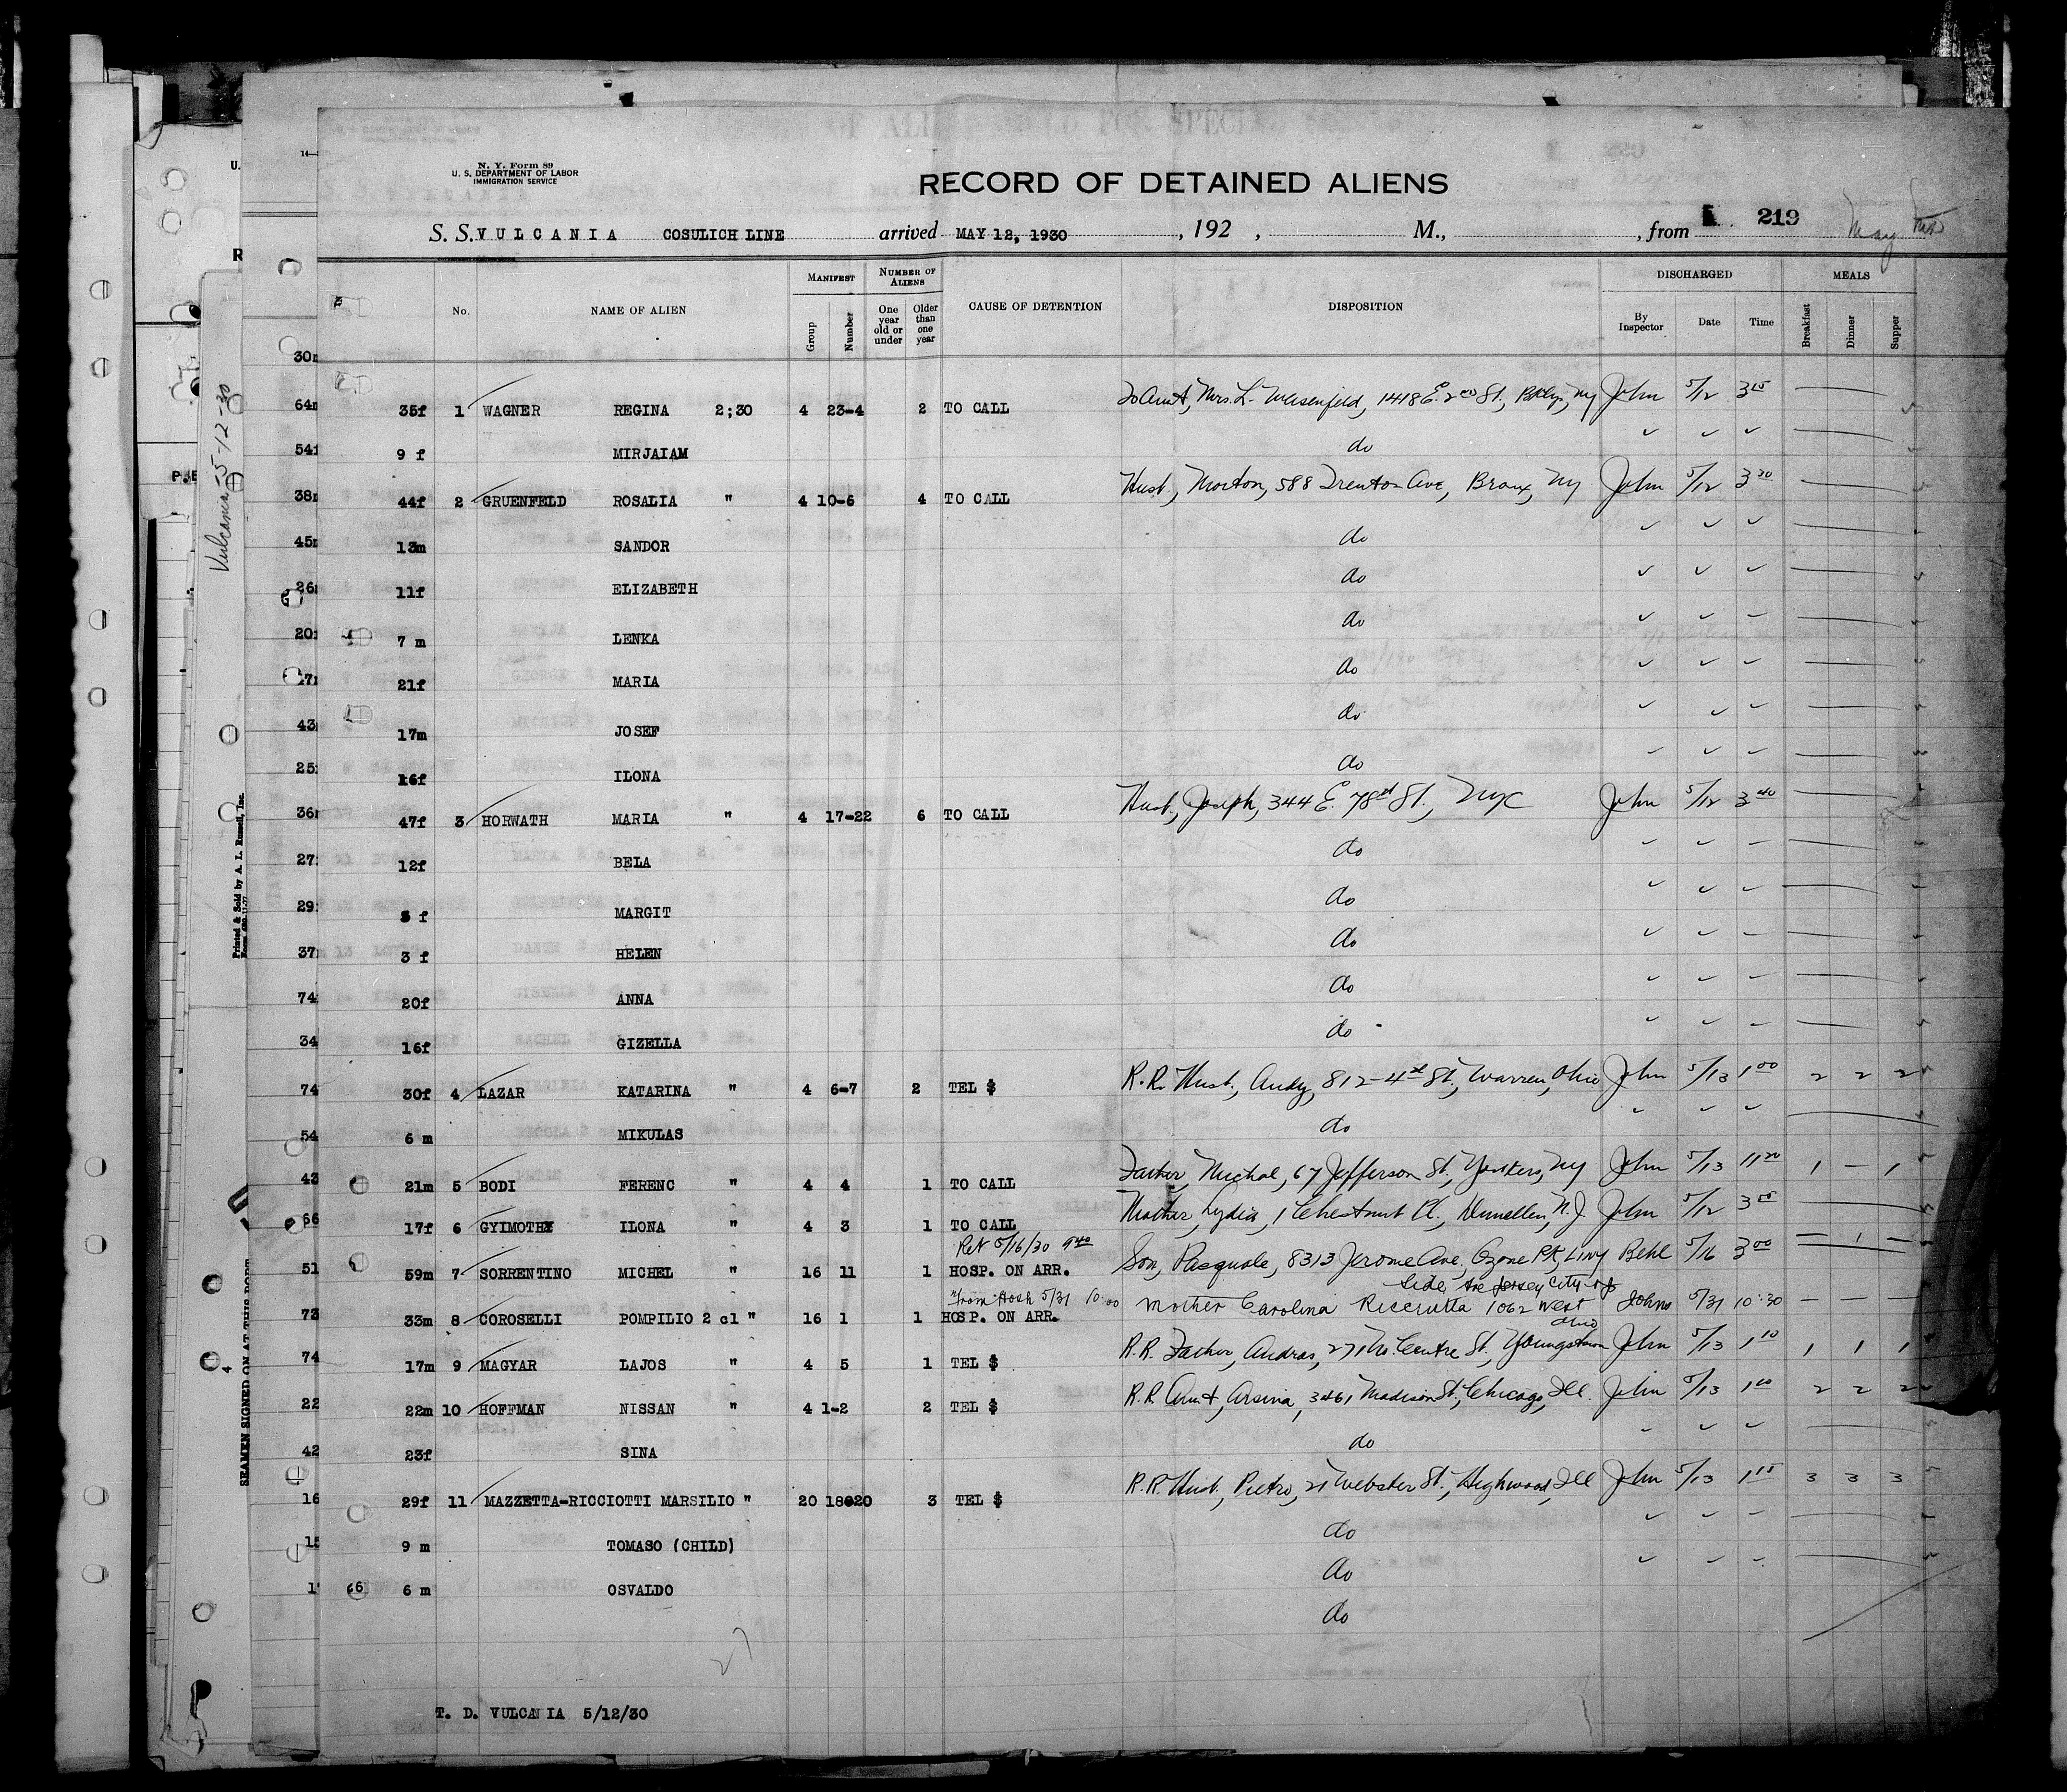 N. Y. Form 89
U. S. DEPARTMENT OF LABOR
IMMIGRATION SERVICE
RECORD OF DETAINED ALIENS
219
S. S. VULCANIA COSULICH LINE arrived MAY 12, 1930, 192 , M., from May
No. NAME OF ALIEN MANIFEST Group Number NUMBER OF ALIENS One year old or under Older than one year CAUSE OF DETENTION DISPOSITION DISCHARGED By Inspector Date Time MEALS Breakfast Dinner Supper
35f 1 WAGNER REGINA 2;30 4 23-4 2 TO CALL To Aunt, Mrs. L. 1418 E. 2nd St., Bklyn, NY John 5/12 3 15
9 f MIRJAIAM do
44f 2 GRUENFELD ROSALIA " 4 10-6 4 TO CALL Husb., Morton, 588 Trenton Ave, Bronx, NY John 5/12 3 30
13m SANDOR do
11f ELIZABETH do
7 m LENKA do
21f MARIA do
17m JOSEF do
16f ILONA do
47f 3 HORWATH MARIA " 4 17-22 6 TO CALL Husb., Joseph, 344 E 78st St., NYC John 5/12 3 40
12f BELA do
5 f MARGIT do
3 f HELEN do
20f ANNA do
16f GIZELLA do
30f 4 LAZAR KATARINA " 4 6-7 2 TEL $ R.R. Husb., Andy, 812-4st St., Warren, Ohio John 5/13 1 00 2 2 2
6 m MIKULAS do
21m 5 BODI FERENC " 4 4 1 TO CALL Father, Michal, 67 Jefferson St, Yonkers, NY John 5/13 11 20 1 - 1
17f 6 GYIMOTHY ILONA " 4 3 1 TO CALL Mother, Lydia, 1 Chestnut Pl., Dunellen, N.J. John 5/12 3 55
Ret 5/16/30 9 40
59m 7 SORRENTINO MICHEL " 16 11 1 HOSP. ON ARR. Son, Pasquale, 8313 Jerome Ave., Ozone Pk, LINY Behl 5/16 3 00 - 1 -
From Hosh 5/31 10:00
33m 8 COROSELLI POMPILIO 2 cl " 16 1 1 HOSP. ON ARR. Mother Carolina Ricciutta 1062 West Side Ave Jersey City NJ Johns 5/31 10:30 - - -
17m 9 MAGYAR LAJOS " 4 5 1 TEL $ R.R. Father, Andras, 271 N. Centre St., Youngstown Ohio John 5/13 1 10 1 1 1
22m 10 HOFFMAN NISSAN " 4 1-2 2 TEL $ R.R. Aunt, Arsina, 3461 Madison St., Chicago, Ill. John 5/13 1 00 2 2 2
23f SINA do
29f 11 MAZZETTA-RICCIOTTI MARSILIO " 20 18-20 3 TEL $ R.R. Husb., Pietro, 21 Webster St., Highwood, Ill John 5/13 1 15 3 3 3
9 m TOMASO (CHILD) do
6 m OSVALDO do
do
27
T. D. VULCANIA 5/12/30
Vulcania 5-12-30
Printed & Sold by A. L. Russell, Inc.
SEAMEN SIGNED ON AT THIS PORT